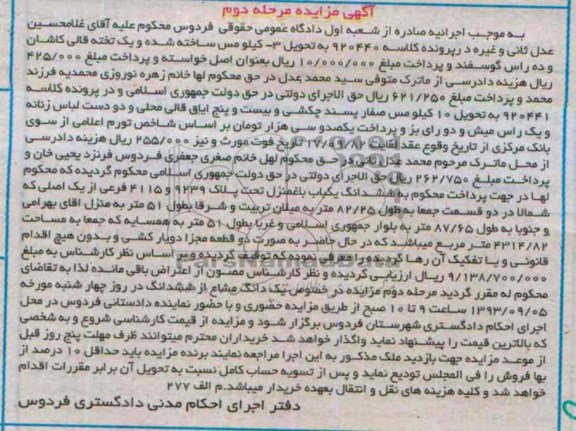 آگهی مزایده مرحله دوم
به موجب اجرائیه صادره از شعبه اول دادگاه عمومی حقوقی فردوس محکوم علیه آقای غلامحسین
عدل ثانی و غیره در پرونده کلاسه ۹۲۰۴۴۰ به تحویل ۳- کیلو مس ساخته شده و یک تخته قالی کاشان
و ده راس گوسفند و پرداخت مبلغ ۱۰/۰۰۰/۰۰۰ ریال بعنوان اصل خواسته و پرداخت مبلغ ۴۲۵/۰۰۰
ریال هزینه دادرسی از ماترک متوفی سید محمد عدل در حق محکوم لها خانم زهره نوروزی محمدیه فرزند
محمد و پرداخت مبلغ ۶۲۱/۲۵۰ ریال حق الاجرای دولتی در حق دولت جمهوری اسلامی و در پرونده کلاسه
۹۲۰۴۴۱ به تحویل ۱۰ کیلو مس صفار پسند چکشی و بیست و پنج ایاق قالی محلی و دو دست لباس زنانه
و یک راس میش و دو رای بز و پرداخت یکصدو سی هزار تومان بر اساس شاخص تورم اعلامی از سوی
بانک مرکزی از تاریخ وقوع عقد لغایت تاریخ فوت مورث و نیز ۲۵۵/۰۰۰ ریال هزینه دادرسی
از محل ماترک مرحوم محمد عدل ثانی در حق محکوم لهل خانم صغری جعفری فردوس فرنزد یحیی خان و
پرداخت مبلغ ۲۶۲/۷۵۰ ریال حق الاجرای دولتی در حق دولت جمهوری اسلامی محکوم گردیده که محکوم
لها در جهت پرداخت محکوم به ششدانگ یکباب باغمنزل تحت پلاک ۹۲۳۹ و ۴۱۱۵ فرعی از یک اصلی که
شمالا در دو قسمت جمعا به طول ۸۲/۲۵ متر به میلان تربیت و شرقا بطول ۵۱ متر به منزل اقای بهرامی
و جنوبا به طول ۸۷/۶۵ متر به بلوار جمهوری اسلامی و غربا بطول ۵۱ متر به همسایه که جمعا به مساحت
۴۳۱۴/۸۲ متر مربع میباشد که در حال حاضر به صورت دو قطعه مجزا دوبار کشی و بدون هیچ اقدام
قانونی و یا تفکیک آن رها گردیده را معرفی نموده که توقیف گردیده و بر اساس نظر کارشناس به مبلغ
۹/۱۳۸/۷۰۰/۰۰۰ ریال ارزیابی گردیده و نظر کارشناس مصون از اعتراض باقی مانده لذا به تقاضای
محکوم له مقرر گردید مرحله دوم مزایده در خصوص یک دانگ مشاع از ششدانگ در روز چهار شنبه مورخه
۱۳۹۳/۰۹/۰۵ ساعت ۹ تا ۱۰ صبح از طریق مزایده حضوری و با حضور نماینده دادستانی فردوس در محل
اجرای احکام دادگستری شهرستان فردوس برگزار شود و مزایده از قیمت کارشناسی شروع و به شخصی
که بالاترین قیمت را پیشنهاد نماید واگذار خواهد شد خریداران محترم میتوانند ظرف مهلت پنج روز قبل
از موعد مزایده جهت بازدید ملک مذکور به این اجرا مراجعه نمایند برنده مزایده باید حداقل ۱۰ درصد از
بها فروش را فی المجلس تودیع نماید و پس از تسویه حساب کامل نسبت به تحویل آن برابر مقررات اقدام
خواهد شد و کلیه هزینه های نقل و انتقال بعهده خریدار میباشد.م الف ۲۷۷
دفتر اجرای احکام مدنی دادگستری فردوس.